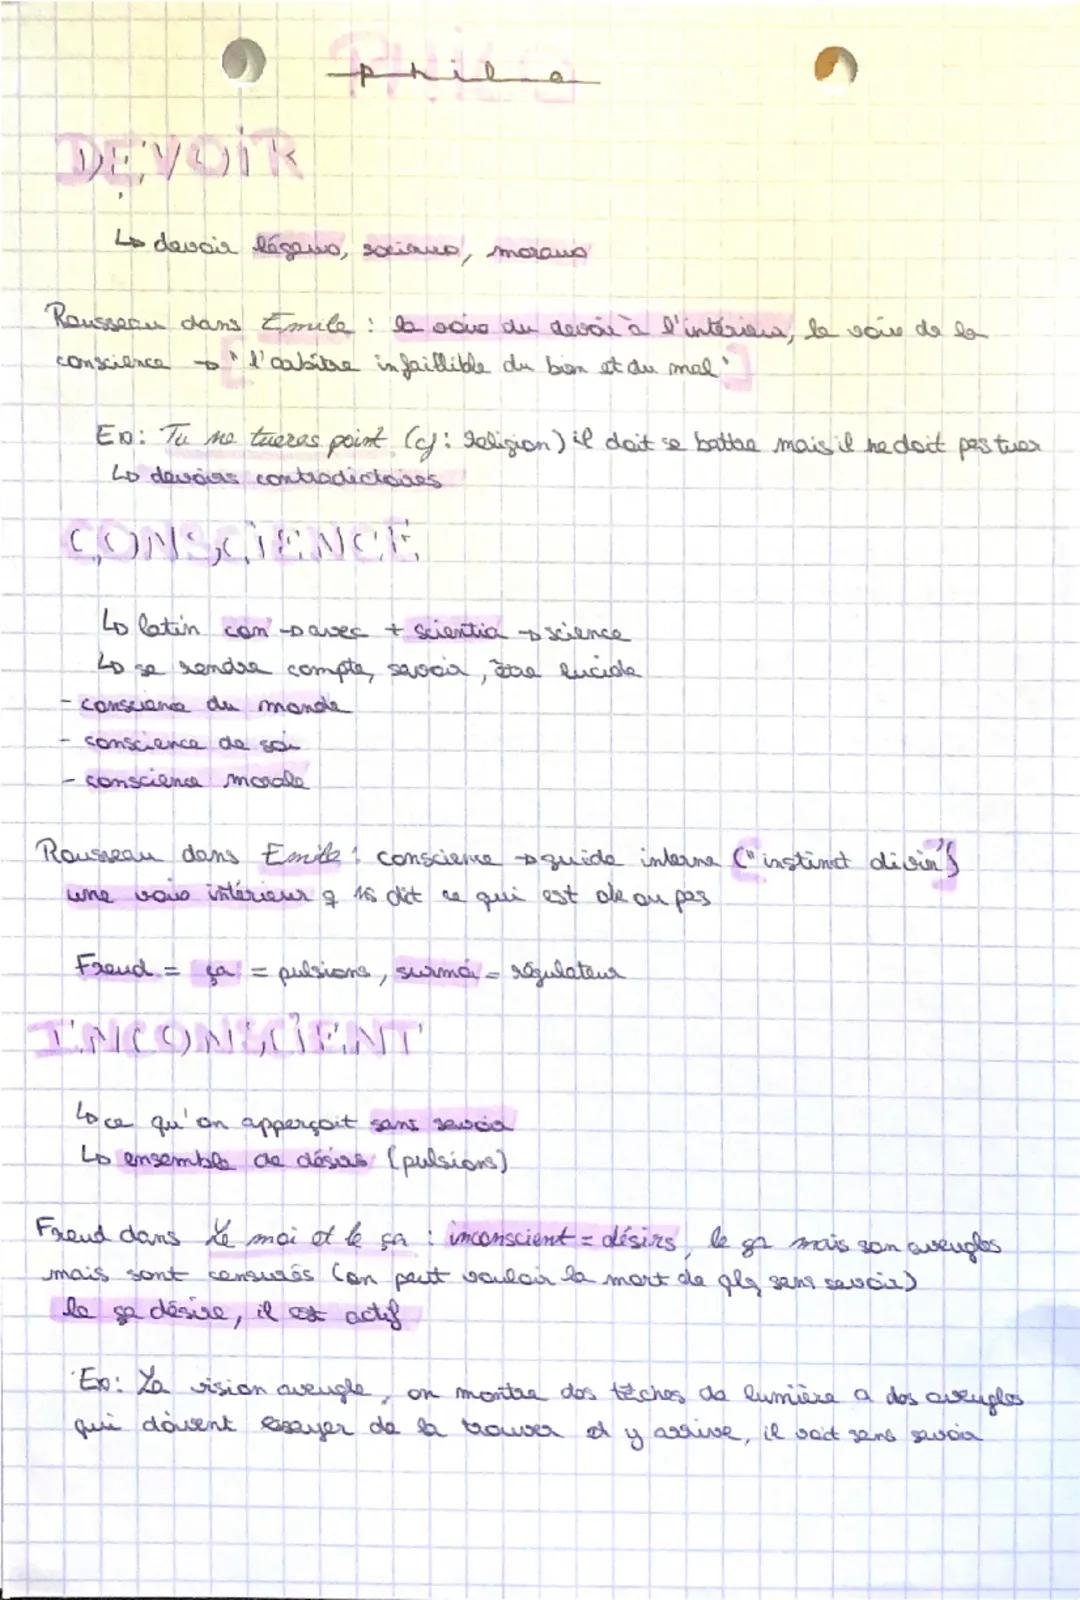 philo
DEVOIR
↳ devoir légaux, sociaux, moraux
Rousseau dans Emile : la voix du devoir à l'intérieur, la voix de la
conscience → "l'arbitre infaillible du bien et du mal"
Ex: Tu ne tueras point (cf: religion) il doit se battre mais il ne doit pas tuer
↳ devoirs contradictoires
CONSCIENCE
↳ latin con → avec + scientia → science
↳ se rendre compte, savoir, être lucide
- conscience du monde
- conscience de soi
- conscience morale
Rousseau dans Emile : conscience → guide interne ("instinct divin")
une voix intérieur q ns dit ce qui est ok ou pas
Freud = ça = pulsions, surmoi = régulateur
INCONSCIENT
↳ ce qu'on apperçoit sans savoir
↳ ensemble de désirs (pulsions)
Freud dans Le moi et le ça : inconscient = désirs, le ça mais son aveugles
mais sont censurés (on peut vouloir la mort de qlq sans savoir)
le ça désire, il est actif
Ex: La vision aveugle, on montre des tâches de lumière a des aveugles
qui doivent essayer de la trouver et y arrive, il voit sans savoir